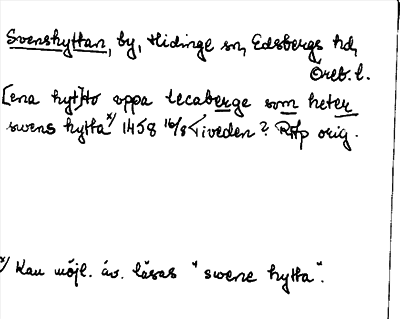 Svenshyttan, by, Hidinge sn, Edsbergs hd,
Öreb. l.
[ena hyt]to oppa lecaberge som heter
swens hytta x) 1458 16/8 Tiveden? RAp orig.
x) Kan möjl. äv. läsas "swene hytta".